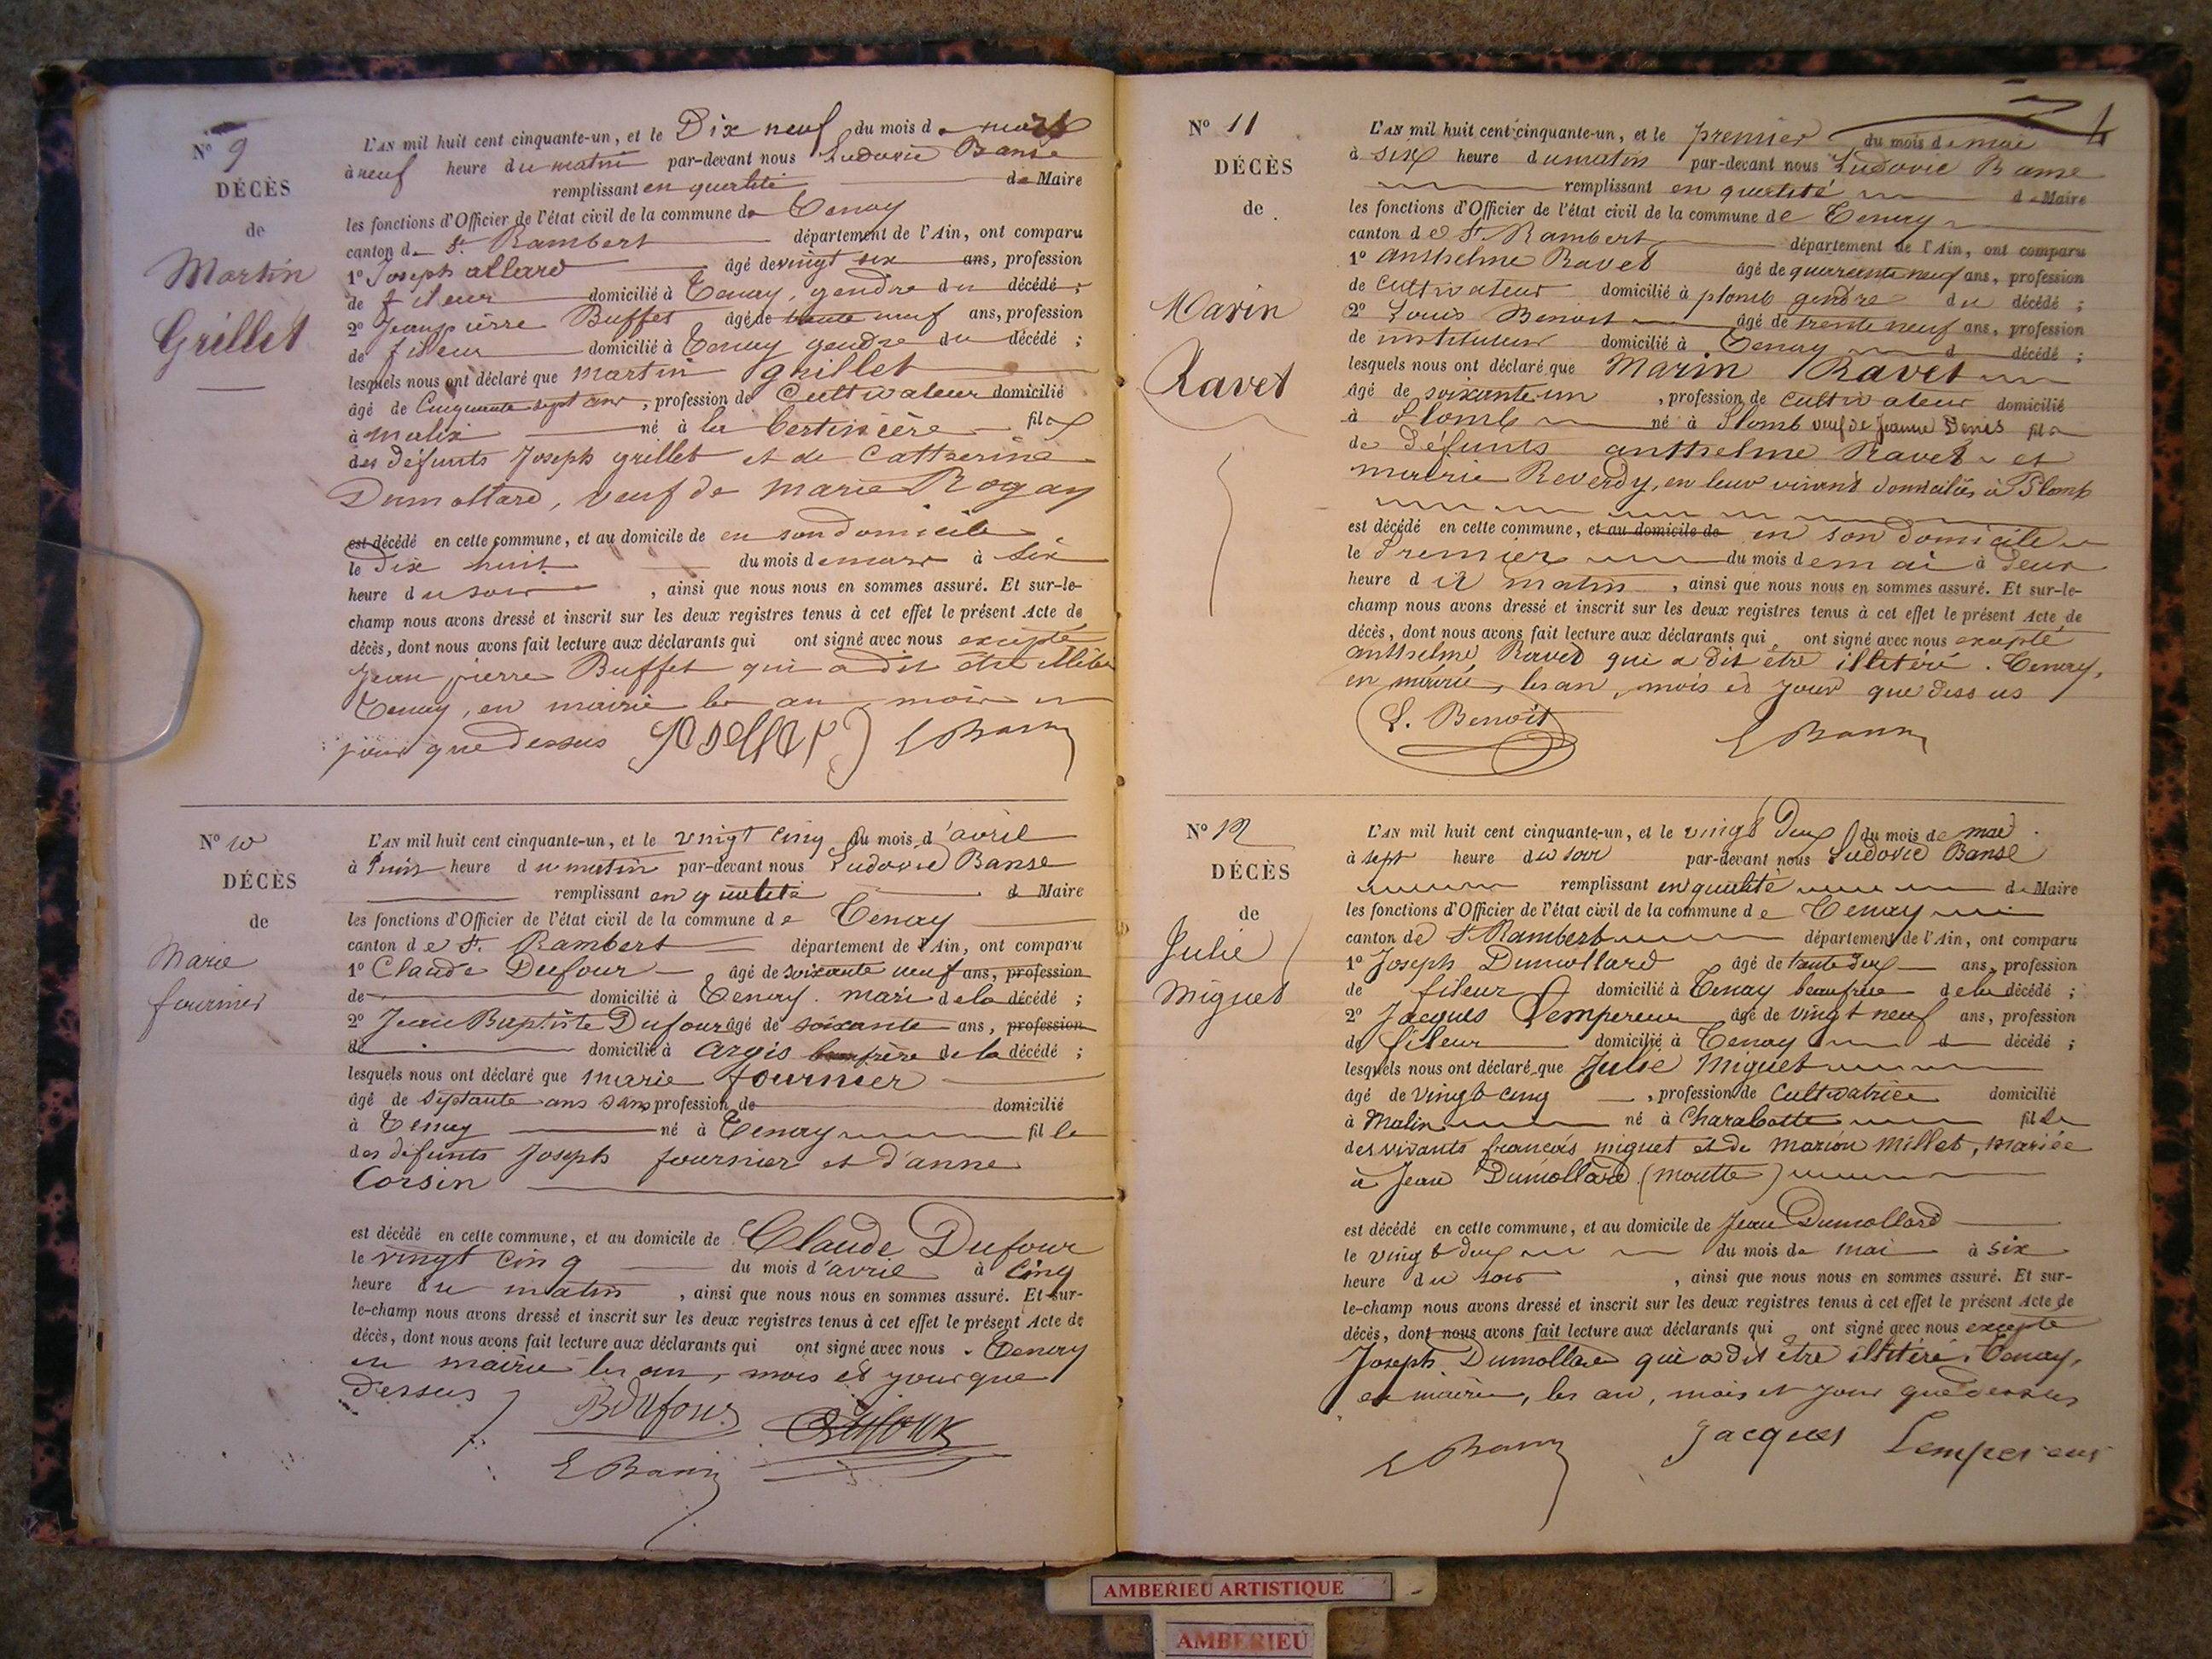 Nº 9
DÉCÈS
de
Martin
Grillet
L'AN mil huit cent cinquante-un, et le Dix neuf du mois de mars
à neuf heure du matin par-devant nous Ludovic Banse
remplissant en qualité de Maire
les fonctions d'Officier de l'état civil de la commune de Tenay
canton de St. Rambert département de l'Ain, ont comparu
1º Joseph allard âgé de vingt six ans, profession
de fileur domicilié à Tenay, gendre du décédé ;
2º Jeanpierre Buffet âgé de neuf ans, profession
de fileur domicilié à Tenay gendre du décédé ;
lesquels nous ont déclaré que martin grillet
âgé de Cinquante sept ans, profession de Cultivateur domicilié
à malix né à la bertinière fils
des défunts Joseph grillet et de Catherine
Dumollard, veuf de marie Rogay
est décédé en cette commune, et au domicile de en son domicile
le dix huit du mois de mars à Six
heure du soir, ainsi que nous nous en sommes assuré. Et sur-le-
champ nous avons dressé et inscrit sur les deux registres tenus à cet effet le présent Acte de
décès, dont nous avons fait lecture aux déclarants qui ont signé avec nous excepté
Jean pierre Buffet qui a dit être
Tenay, en mairie les an, mois et
jour que dessus
Nº 10
DÉCÈS
de
Marie
fournier
L'AN mil huit cent cinquante-un, et le vingt cinq du mois d'avril
à heure du matin par-devant nous Ludovic Banse
remplissant en qualité d Maire
les fonctions d'Officier de l'état civil de la commune de Tenay
canton de St. Rambert département de l'Ain, ont comparu
1º Claude Dufour âgé de soixante neuf ans, profession
de domicilié à Tenay. mari de la décédé ;
2º Jean Baptiste Dufour âgé de soixante ans, profession
de domicilié à argis beaufrère de la décédé ;
lesquels nous ont déclaré que marie fournier
âgé de Septante ans sans profession de domicilié
à Tenay né à Tenay fille
des défunts Joseph fournier et d'anne
Corsin
est décédé en cette commune, et au domicile de Claude Dufour
le vingt cinq du mois d'avril à cinq
heure du matin, ainsi que nous nous en sommes assuré. Et sur-
le-champ nous avons dressé et inscrit sur les deux registres tenus à cet effet le présent Acte de
décès, dont nous avons fait lecture aux déclarants qui ont signé avec nous. Tenay
en mairie les an, mois et jour que
dessus
BDufour Dufour
Nº 11
DÉCÈS
de
Marin
Ravet
L'AN mil huit cent cinquante-un, et le premier du mois de mai
à six heure du matin par-devant nous Ludovic Banse
remplissant en qualité de Maire
les fonctions d'Officier de l'état civil de la commune de Tenay
canton de St. Rambert département de l'Ain, ont comparu
1º anthelme Ravet âgé de quarante neuf ans, profession
de Cultivateur domicilié à plomb gendre du décédé ;
2º Louis Benoit âgé de trente neuf ans, profession
de instituteur domicilié à Tenay d décédé ;
lesquels nous ont déclaré que Marin Ravet
âgé de soixante un, profession de cultivateur domicilié
à Plomb né à Plomb veuf de Jeanne Denis fils
de défunts anthelme Ravet et
marie Reverdy, en leur vivant domiciliés à Plomb
est décédé en cette commune, et au domicile de en son domicile
le Premier du mois de mai à deux
heure du matin, ainsi que nous nous en sommes assuré. Et sur-le-
champ nous avons dressé et inscrit sur les deux registres tenus à cet effet le présent Acte de
décès, dont nous avons fait lecture aux déclarants qui ont signé avec nous excepté
anthelme Ravet qui a dit être illitéré. Tenay,
en mairie, les an, mois et jour que dessus
L. Benoit
Nº 12
DÉCÈS
de
Julie
Miguet
L'AN mil huit cent cinquante-un, et le vingt deux du mois de mai
à sept heure du soir par-devant nous Ludovic Banse
remplissant en qualité de Maire
les fonctions d'Officier de l'état civil de la commune de Tenay
canton de St. Rambert département de l'Ain, ont comparu
1º Joseph Dumollard âgé de trente deux ans, profession
de fileur domicilié à Tenay beaufrère de la décédé ;
2º Jacques Lempereur âgé de vingt neuf ans, profession
de fileur domicilié à Tenay d décédé ;
lesquels nous ont déclaré que Julie Miguet
âgé de vingt cinq, profession de Cultivatrice domicilié
à Malix né à Charabotte fille
des vivants françois miguet et de Marion Millet, mariée
à Jean Dumollard (moutte)
est décédé en cette commune, et au domicile de Jean Dumollard
le vingt deux du mois de mai à six
heure du soir, ainsi que nous nous en sommes assuré. Et sur-
le-champ nous avons dressé et inscrit sur les deux registres tenus à cet effet le présent Acte de
décès, dont nous avons fait lecture aux déclarants qui ont signé avec nous excepté
Joseph Dumollard qui a dit être illitéré. Tenay,
en mairie, les an, mois et jour que dessus
Jacques Lempereur
AMBERIEU ARTISTIQUE
AMBERIEU